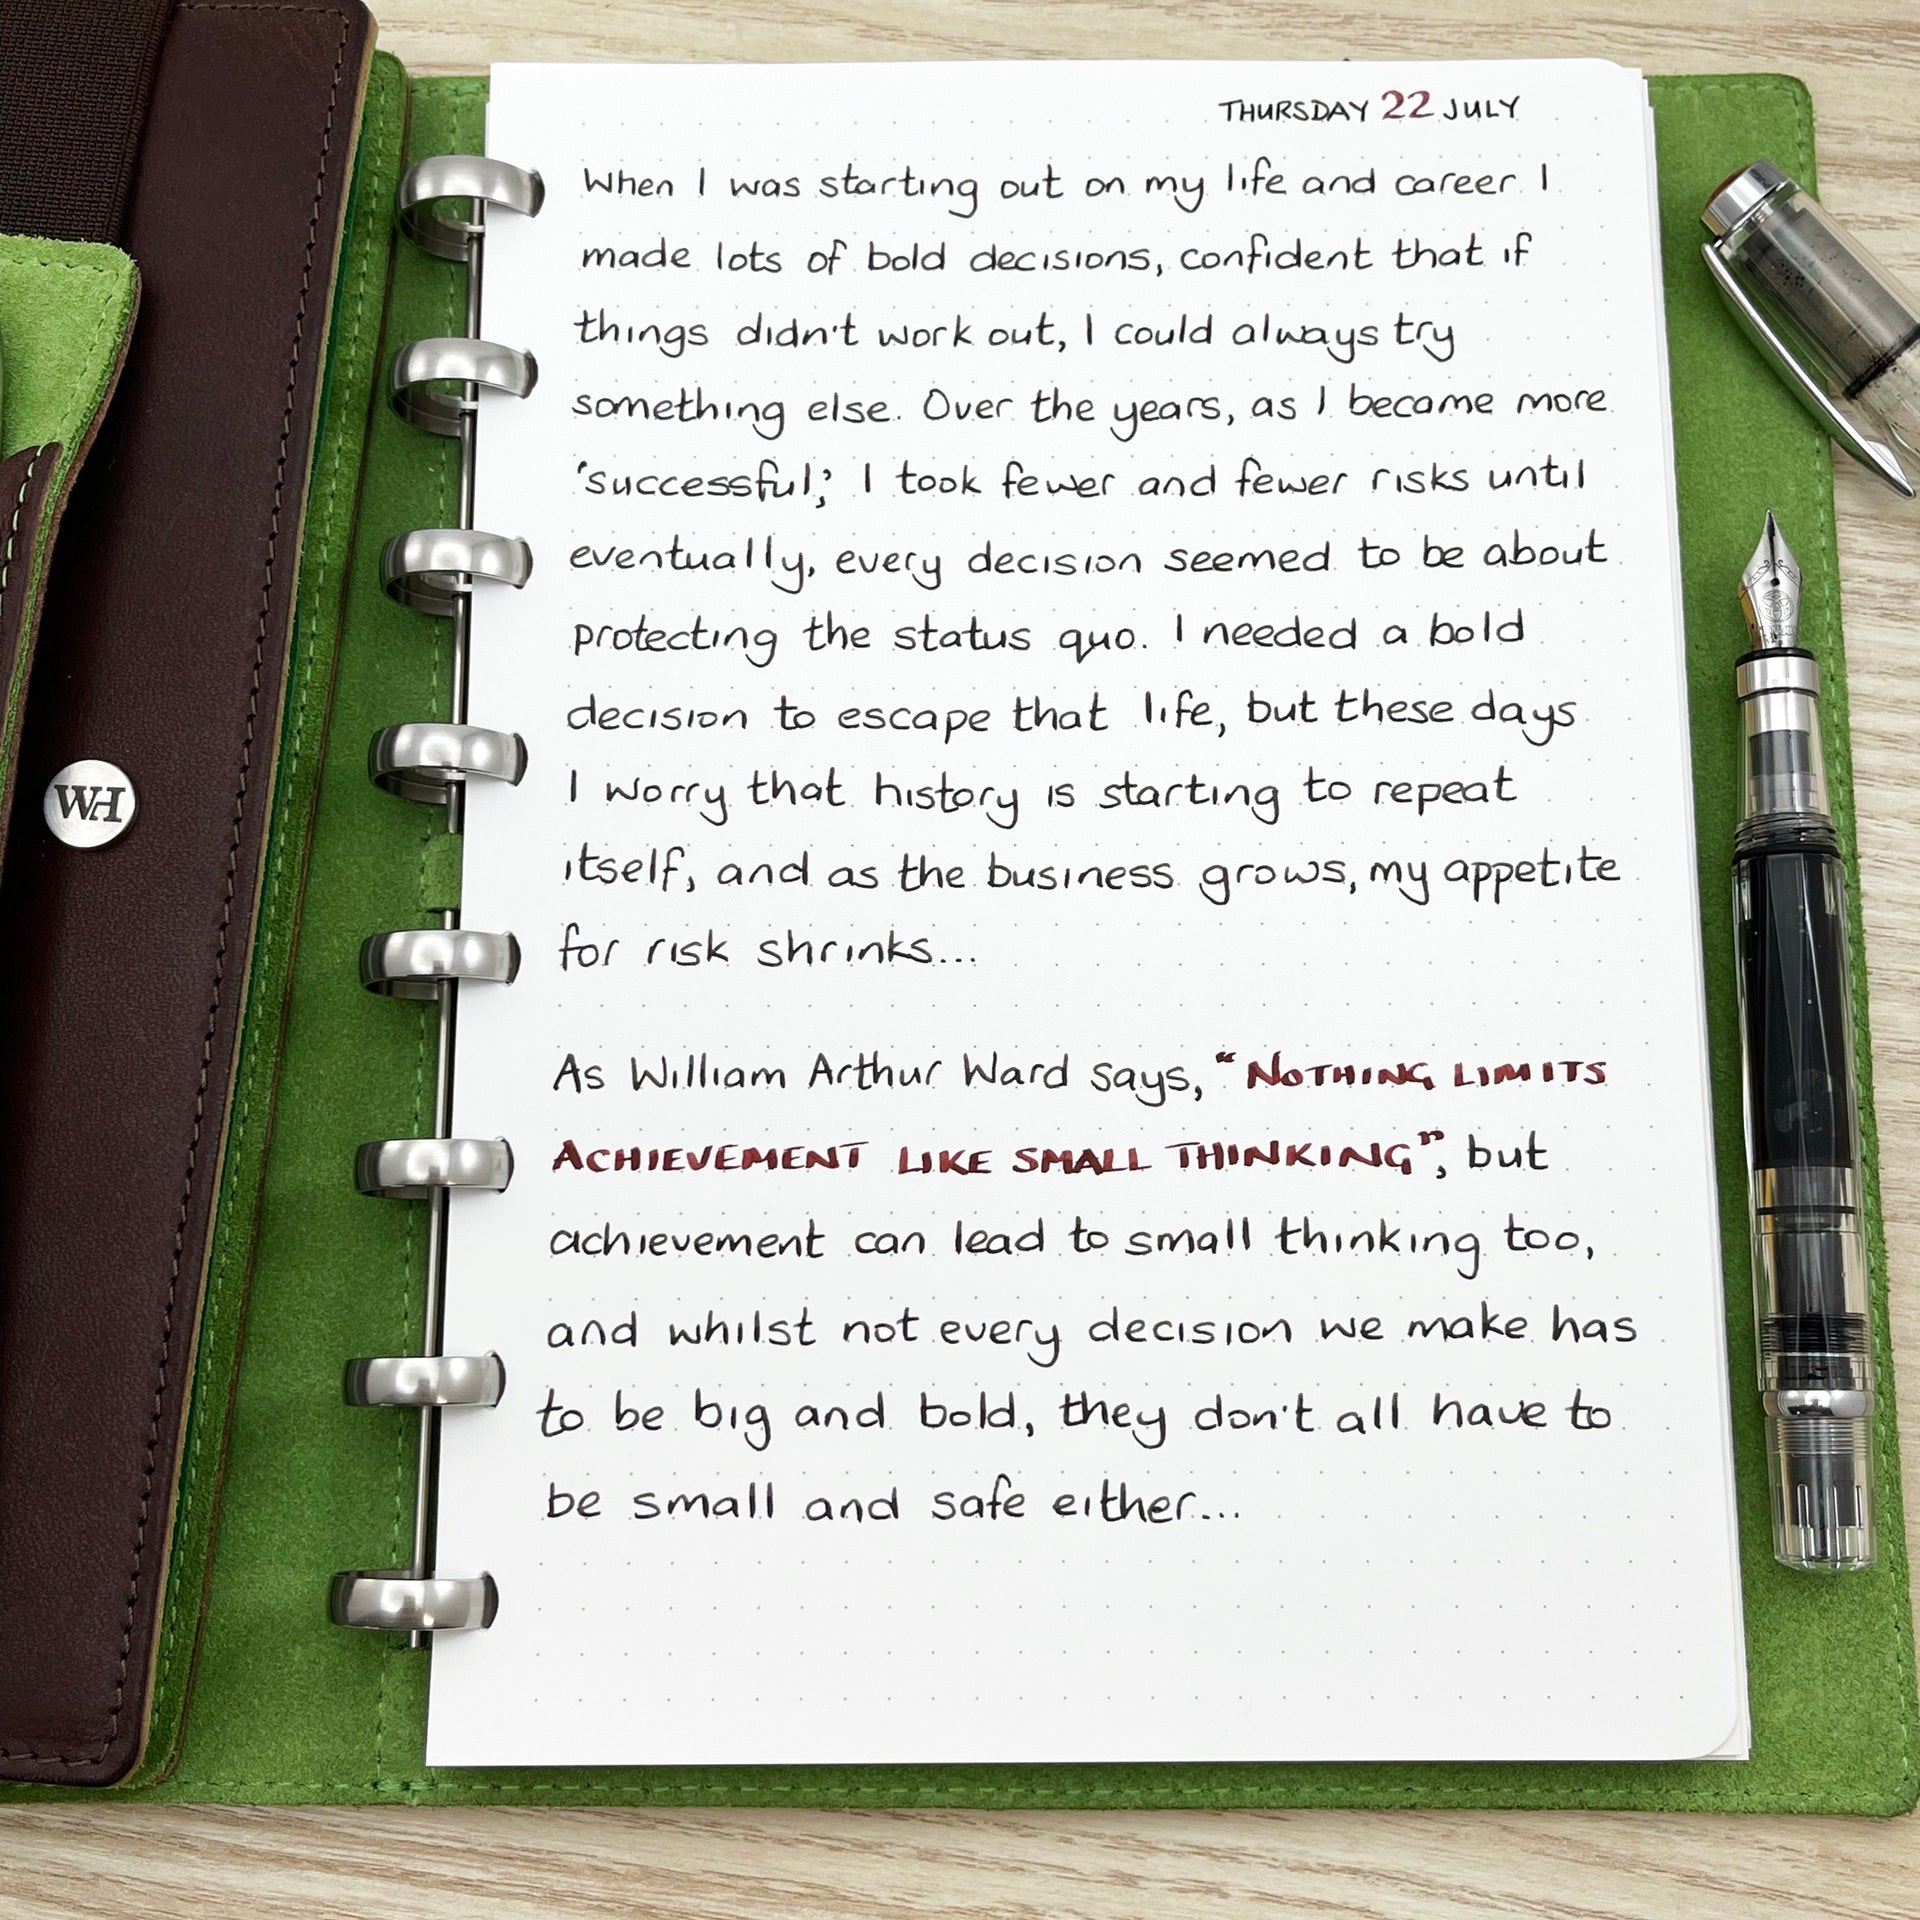 THURSDAY 22 JULY
When I was starting out on my life and career I
made lots of bold decisions, confident that if
things didn't work out, I could always try
something else. Over the years, as I became more
'successful,' I took fewer and fewer risks until
eventually, every decision seemed to be about
protecting the status quo. I needed a bold
decision to escape that life, but these days
I worry that history is starting to repeat
itself, and as the business grows, my appetite
for risk shrinks...
As William Arthur Ward says, "NOTHING LIMITS
ACHIEVEMENT LIKE SMALL THINKING", but
achievement can lead to small thinking too,
and whilst not every decision we make has
to be big and bold, they don't all have to
be small and safe either...
WH